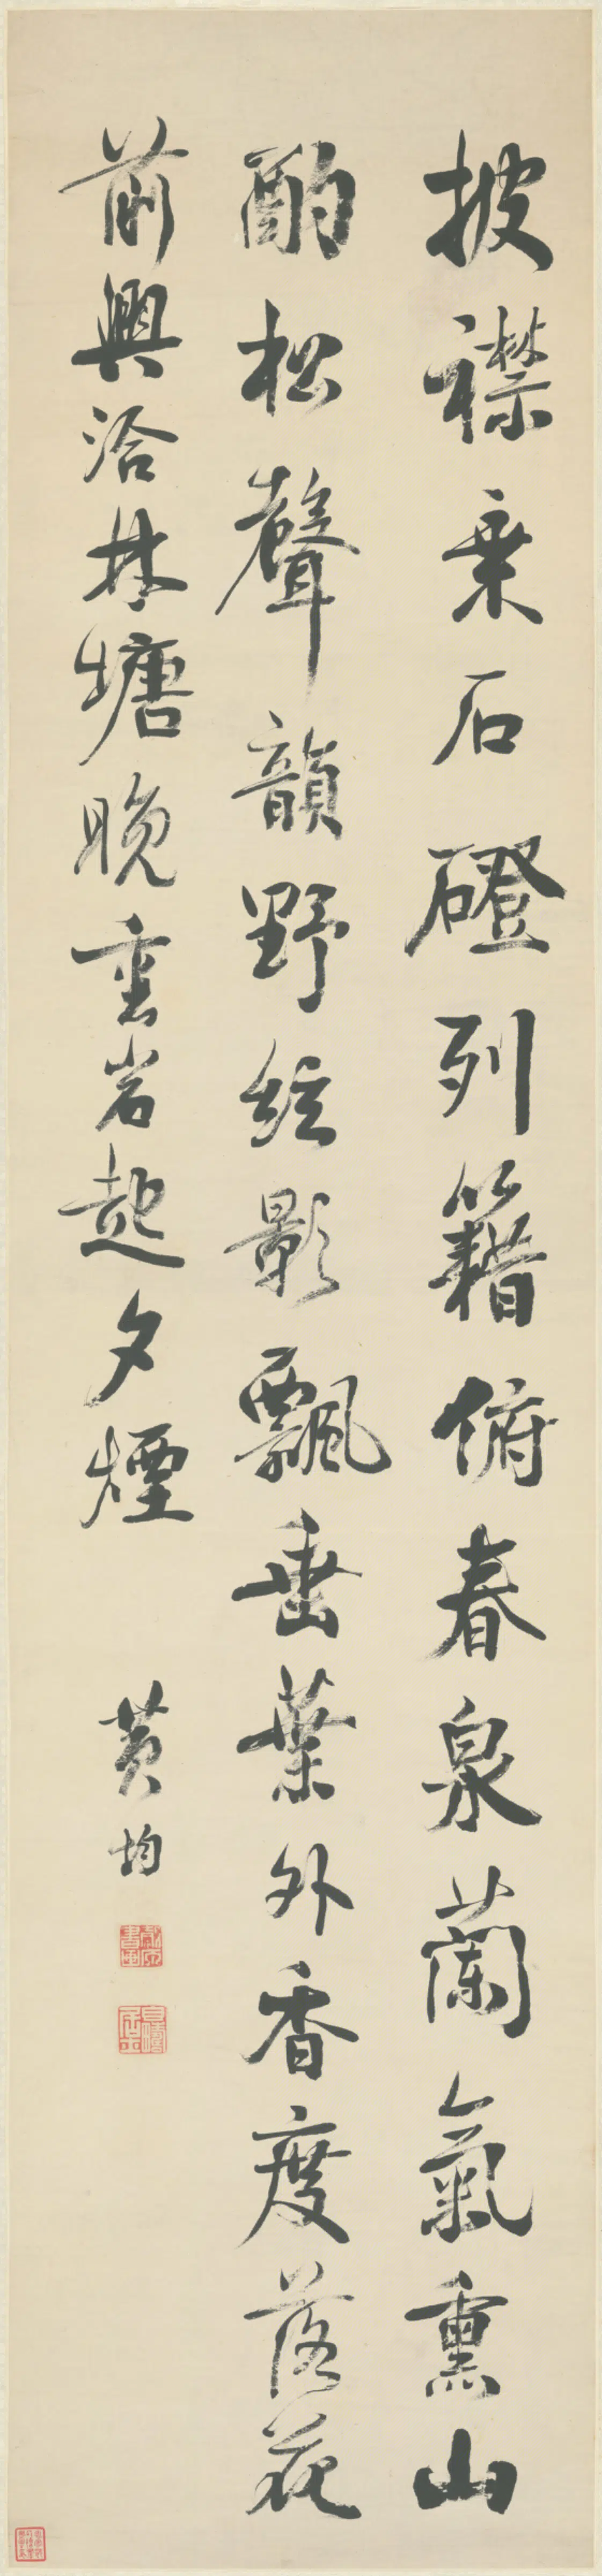 披襟乘石磴列籍俯春泉蘭氣熏山
酌松聲韻野絃影飄垂葉外香度落花
前興洽林塘晚重岩起夕煙
黃均